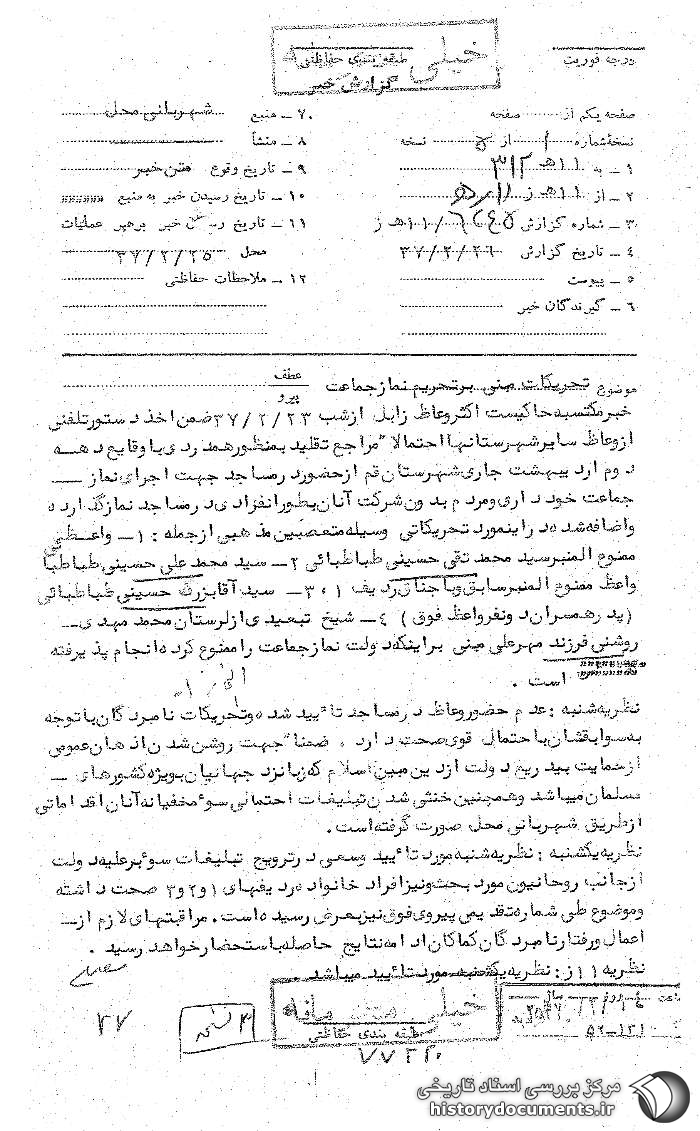 خیلی محرمانه
طبقه بندی حفاظتی
گزارش خبر
درجه فوریت
صفحه یکم از صفحه
نسخه شماره ۱ از ۵ نسخه
۱ – به ۳۱۲ ه‍ ۱۱
۲ – از ۱۱ ه‍
۳ – شماره گزارش ۱۱/۶۶۴۵ ه‍ ز
۴ – تاریخ گزارش ۳۷/۲/۲۶
۵ – پیوست
۶ – گیرندگان خبر
۷ – منبع شهربانی محل
۸ – منشأ
۹ – تاریخ وقوع متن خبر
۱۰ – تاریخ رسیدن خبر به منبع
۱۱ – تاریخ رسیدن خبر برهبر عملیات
محل ۳۷/۲/۲۵
۱۲ – ملاحظات حفاظتی
موضوع تحریکات مبنی بر تحریم نماز جماعت عطف پیرو
خبر مکتسبه حاکیست اکثر وعاظ زابل از شب ۳۷/۲/۲۳ ضمن اخذ دستور تلفنی
از وعاظ سایر شهرستانها احتمالا" مراجع تقلید بمنظور همدردی با وقایع دهه
دوم اردیبهشت جاری شهرستان قم از حضور در مساجد جهت اجرای نماز —
جماعت خودداری و مردم بدون شرکت آنان بطور انفرادی در مساجد نماز گذارده
و اضافه شده در اینمورد تحریکاتی وسیله متعصبین مذهبی از جمله : ۱ – واعظ
ممنوع المنبر سید محمد تقی حسینی طباطبائی ۲ – سید محمد علی حسینی طباطبا
واعظ ممنوع المنبر سابق و باجناق ردیف ۱ ، ۳ – سید آقا بزرگ حسینی طباطبائی
(پدر همسران دو نفر واعظ فوق ) ۴ – شیخ تبعیدی از لرستان محمد مهدی –
روشنی فرزند مهرعلی مبنی بر اینکه دولت نماز جماعت را ممنوع کرده انجام پذیرفته
است .
نظریه شنبه : عدم حضور وعاظ در مساجد تائید شده و تحریکات نامبردگان با توجه
به سوابقشان با احتمال قوی صحت دارد . ضمنا" جهت روشن شدن اذهان عمومی
از حمایت بیدریغ دولت از دین مبین اسلام که زبانزد جهانیان بویژه کشورهای –
مسلمان میباشد و همچنین خنثی شدن تبلیغات احتمالی سوء مخفیانه آنان اقداماتی
از طریق شهربانی محل صورت گرفته است .
نظریه یکشنبه : نظریه شنبه مورد تائید وسعی در ترویج تبلیغات سوء بر علیه دولت
از جانب روحانیون مورد بحث و نیز افراد خانواده ردیفهای ۱ و ۲ و ۳ صحت داشته
و موضوع طی شماره تقدیمی پیروی فوق نیز بعرض رسیده است . مراقبتهای لازم از –
اعمال و رفتار نامبردگان کماکان ادامه نتایج حاصله باستحضار خواهد رسید .
نظریه ۱۱ ز : نظریه یکشنبه مورد تائید میباشد .
خیلی محرمانه
طبقه بندی حفاظتی
۷۷۲۲۰
۲۷
۵۲–۱۲۱
مرکز بررسی اسناد تاریخی
historydocuments.ir